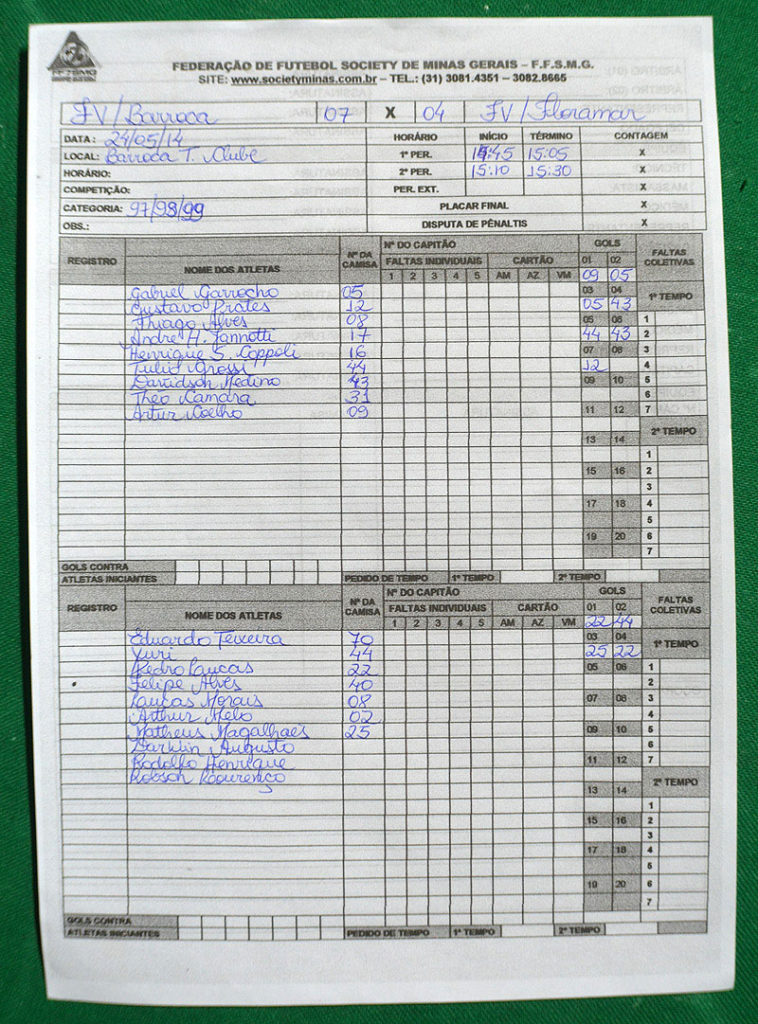 FEDERAÇÃO DE FUTEBOL SOCIETY DE MINAS GERAIS – F.F.S.M.G.
SITE: www.societyminas.com.br – TEL.: (31) 3081.4351 – 3082.8665
FV/Barroca 07 X 04 FV/Floramar
DATA: 24/05/14 HORÁRIO INÍCIO TÉRMINO CONTAGEM
LOCAL: Barroca T. Clube 1º PER. 14:45 15:05 X
HORÁRIO: 2º PER. 15:10 15:30 X
COMPETIÇÃO: PER. EXT. X
CATEGORIA: 97/98/99 PLACAR FINAL X
OBS.: DISPUTA DE PÊNALTIS X
REGISTRO NOME DOS ATLETAS Nº DA CAMISA Nº DO CAPITÃO GOLS FALTAS COLETIVAS
FALTAS INDIVIDUAIS CARTÃO 01 02
1 2 3 4 5 AM AZ VM 09 05
Gabriel Garrocho 05 03 04 1º TEMPO
Gustavo Prates 12 05 43
Thiago Alves 08 05 06 1
Andre H. Iannotti 17 44 43 2
Henrique S. Coppoli 16 07 08 3
Tulio Grossi 44 12 4
Davidson Medino 43 09 10 5
Theo Camara 31 6
Artur Coelho 09 11 12 7
2º TEMPO
13 14
1
15 16 2
3
17 18 4
5
19 20 6
7
GOLS CONTRA
ATLETAS INICIANTES PEDIDO DE TEMPO 1º TEMPO 2º TEMPO
REGISTRO NOME DOS ATLETAS Nº DA CAMISA Nº DO CAPITÃO GOLS FALTAS COLETIVAS
FALTAS INDIVIDUAIS CARTÃO 01 02
1 2 3 4 5 AM AZ VM 22 44
Eduardo Teixeira 70 03 04 1º TEMPO
Yuri 44 25 22
Pedro Lucas 22 05 06 1
Felipe Alves 40 2
Lucas Morais 08 07 08 3
Arthur Melo 02 4
Matheus Magalhães 25 09 10 5
Darklin Augusto 6
Rodolfo Henrique 11 12 7
Robson Lourenço 2º TEMPO
13 14
1
15 16 2
3
17 18 4
5
19 20 6
7
GOLS CONTRA
ATLETAS INICIANTES PEDIDO DE TEMPO 1º TEMPO 2º TEMPO